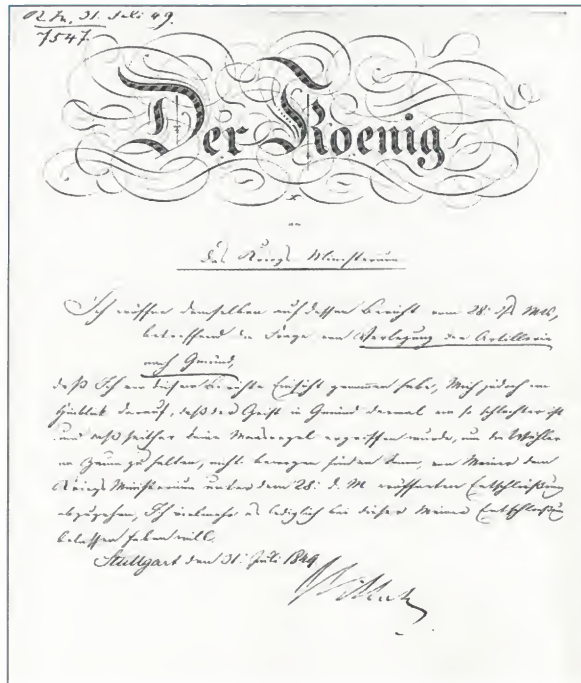 31. Juli 49.
7547.
Der Koenig
an
das Kriegs Ministerium
Ich eröffne demselben auf dessen Bericht vom 28: dß Mts,
betreffend die Frage von Verlegung der Artillerie
nach Gmünd,
daß Ich von diesem Berichte Einsicht genommen habe, Mich jedoch im
Hinblick darauf, daß der Geist in Gmünd dermal ein so schlechter ist
und daß seither keine Maasregel ergriffen wurde, um die Wühler
im Zaum zu halten, nicht bewogen finden kann, von Meiner dem
Kriegs Ministerium unter dem 28: d. M. eröffneten Entschließung
abzugehen, Ich vielmehr es lediglich bei dieser Meiner Entschließung
belassen haben will.
Stuttgart den 31: Juli 1849
Wilhelm